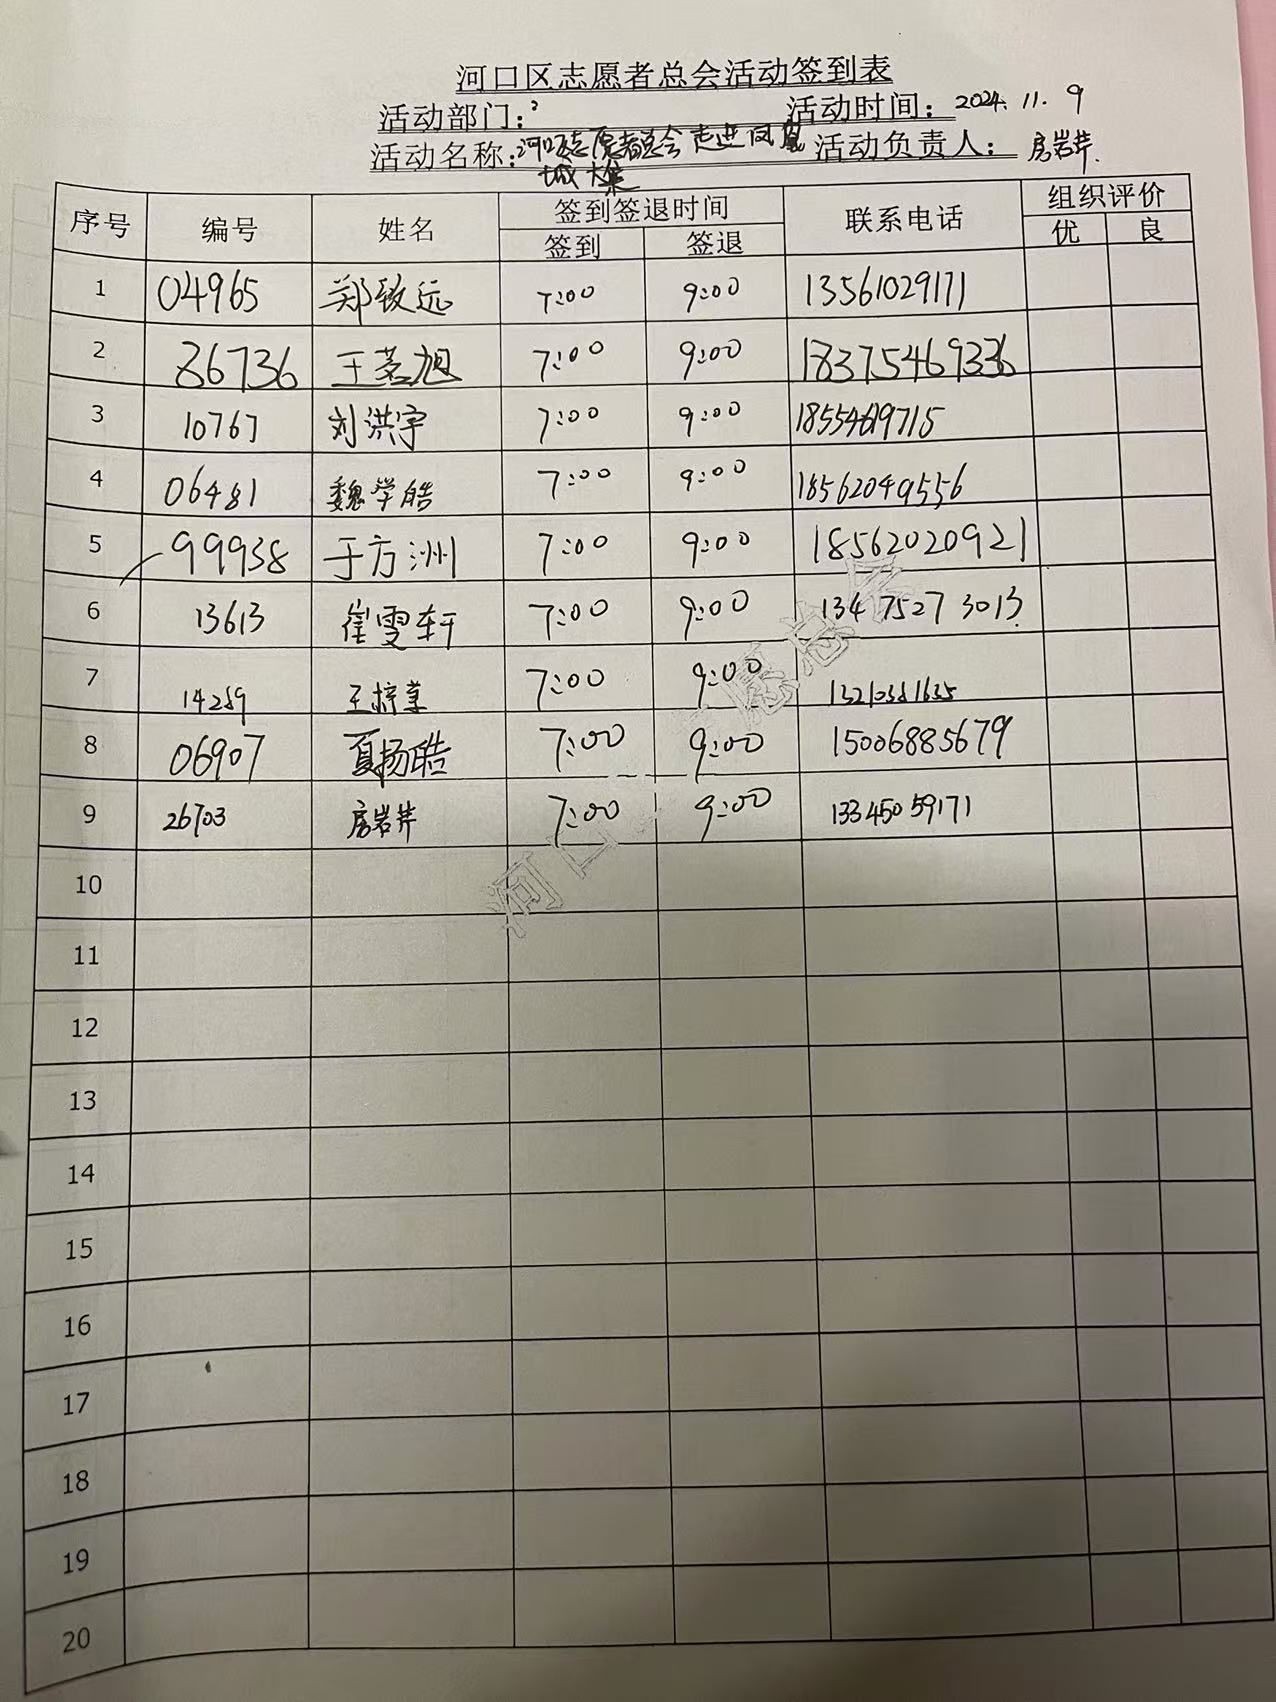 河口区志愿者总会活动签到表
活动部门: 活动时间: 2024.11.9
活动名称: 河口区志愿者总会走进凤凰 活动负责人: 房岩芹
城大集
序号 编号 姓名 签到签退时间 联系电话 组织评价
签到 签退 优 良
1 04965 郑致远 7:00 9:00 13561029171
2 86736 王茗旭 7:00 9:00 18375469336
3 10767 刘洪宇 7:00 9:00
4 06481 魏学皓 7:00 9:00 18562049556
5 99938 于方洲 7:00 9:00 18562020921
6 13613 崔雯轩 7:00 9:00 13475273013
7 14289 王梓 7:00 9:00
8 06907 夏扬皓 7:00 9:00 15006885679
9 26703 房岩芹 7:00 9:00 13345059171
10
11
12
13
14
15
16
17
18
19
20
河口 志愿总会